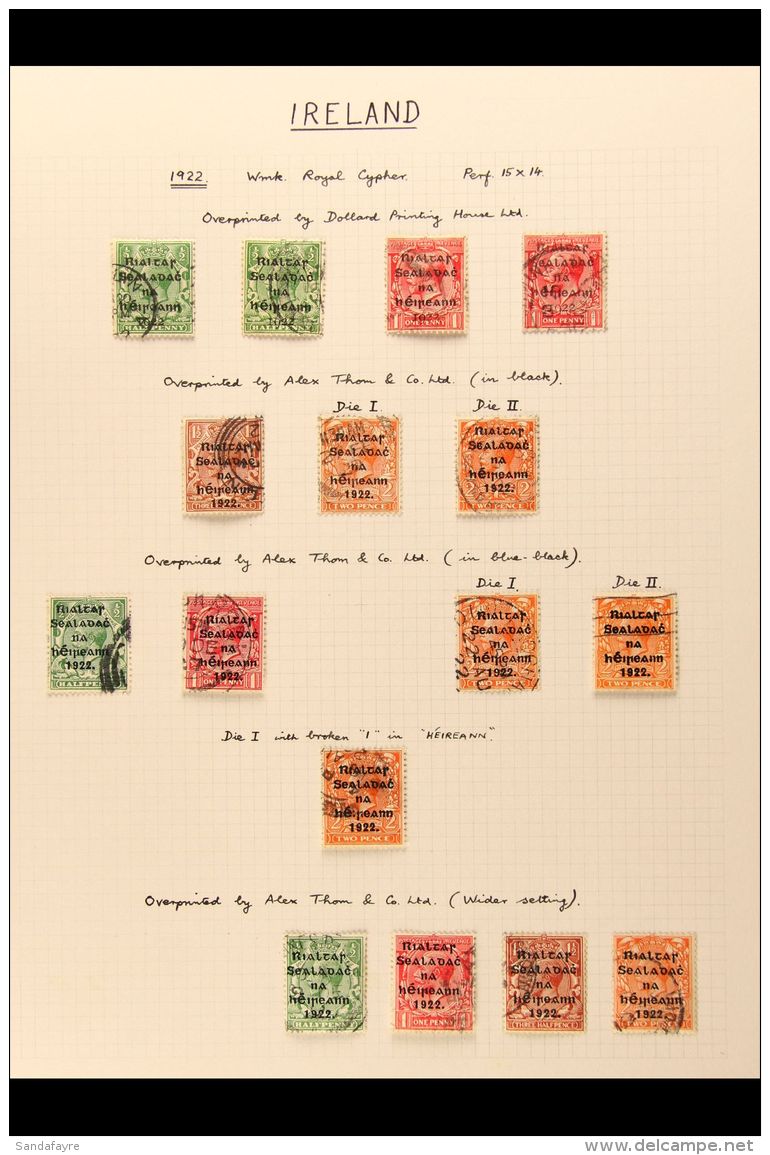 IRELAND
1922. Wmk. Royal Cypher. Perf. 15 x 14.
Overprinted by Dollard Printing House Ltd.
Rialtaſ Rialtaſ Rialtaſ Rialtaſ
Sealadaċ Sealadaċ Sealadaċ Sealadaċ
na na na na
hÉireann hÉireann hÉireann hÉireann
1922 1922 1922 1922
HALFPENNY HALFPENNY 1 ONE PENNY 1 ONE PENNY
Overprinted by Alex Thom & Co. Ltd. (in black).
Die I Die II
Rialtaſ Rialtaſ Rialtaſ
Sealadaċ Sealadaċ Sealadaċ
na na na
hÉireann hÉireann hÉireann
1922. 1922. 1922.
TWO PENCE TWO PENCE
Overprinted by Alex Thom & Co. Ltd. (in blue-black).
Die I Die II
Rialtaſ Rialtaſ Rialtaſ Rialtaſ
Sealadaċ Sealadaċ Sealadaċ Sealadaċ
na na na na
hÉireann hÉireann hÉireann hÉireann
1922. 1922. 1922. 1922.
ONE PENNY 1 TWO PENCE TWO PENCE
Die I with broken "I" in "HÉIREANN".
Rialtaſ
Sealadaċ
na
hÉireann
1922.
TWO PENCE
Overprinted by Alex Thom & Co. Ltd. (Wider setting).
Rialtaſ Rialtaſ Rialtaſ Rialtaſ
Sealadaċ Sealadaċ Sealadaċ Sealadaċ
na na na na
hÉireann hÉireann hÉireann hÉireann
1922. 1922. 1922. 1922.
HALFPENNY 1 ONE PENNY THREE HALFPENCE TWO PENCE
Sandafayre
www.delcampe.net